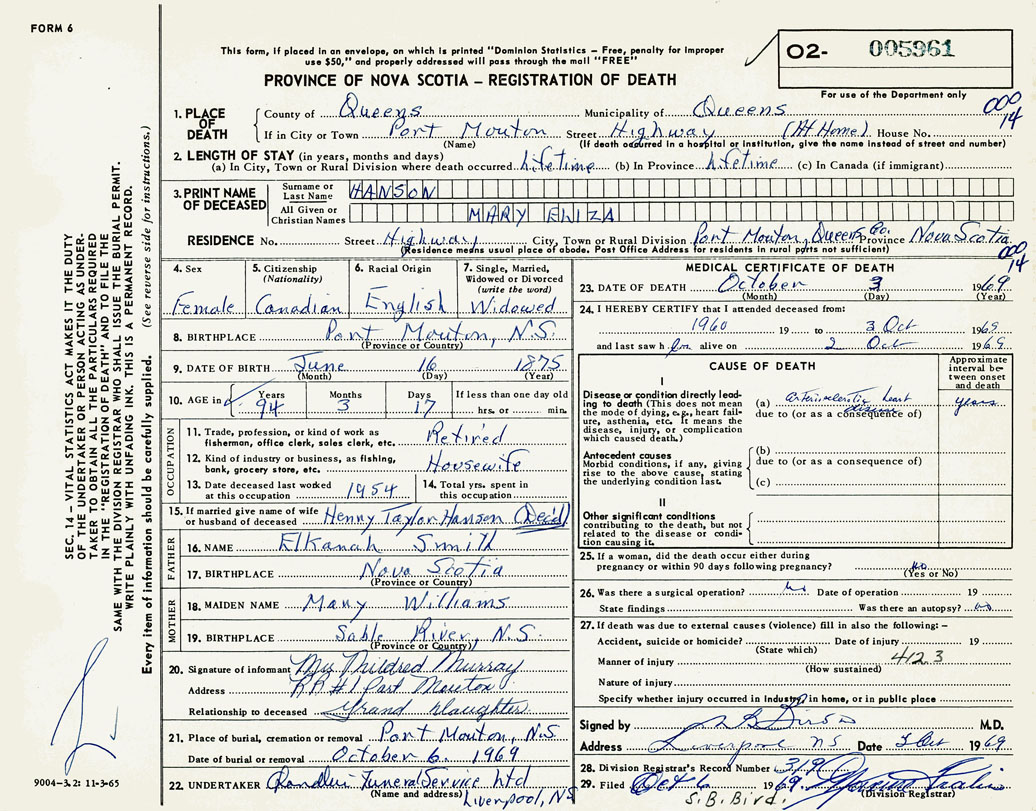 FORM 6
This form, if placed in an envelope, on which is printed "Dominion Statistics – Free, penalty for improper
use $50," and properly addressed will pass through the mail "FREE"
O2- 005961
For use of the Department only
PROVINCE OF NOVA SCOTIA – REGISTRATION OF DEATH
000
14
1. PLACE OF DEATH
County of Queens Municipality of Queens
If in City or Town Port Mouton Street Highway (At Home) House No.
(Name) (If death occurred in a hospital or institution, give the name instead of street and number)
2. LENGTH OF STAY (in years, months and days)
(a) In City, Town or Rural Division where death occurred Lifetime (b) In Province Lifetime (c) In Canada (if immigrant)
3. PRINT NAME OF DECEASED
Surname or Last Name HANSON
All Given or Christian Names MARY ELIZA
RESIDENCE No. Street Highway City, Town or Rural Division Port Mouton, Queens Co. Province Nova Scotia
(Residence means usual place of abode. Post Office Address for residents in rural parts not sufficient)
000
14
4. Sex Female
5. Citizenship (Nationality) Canadian
6. Racial Origin English
7. Single, Married, Widowed or Divorced (write the word) Widowed
8. BIRTHPLACE Port Mouton, N.S.
(Province or Country)
9. DATE OF BIRTH June 16 1875
(Month) (Day) (Year)
10. AGE in Years 94 Months 3 Days 17 If less than one day old hrs. or min.
OCCUPATION
11. Trade, profession, or kind of work as fisherman, office clerk, sales clerk, etc. Retired
12. Kind of industry or business, as fishing, bank, grocery store, etc. Housewife
13. Date deceased last worked at this occupation 1954
14. Total yrs. spent in this occupation
15. If married give name of wife or husband of deceased Henry Taylor Hanson (Dec'd)
FATHER
16. NAME Elkanah Smith
17. BIRTHPLACE Nova Scotia
(Province or Country)
MOTHER
18. MAIDEN NAME Mary Williams
19. BIRTHPLACE Sable River, N.S.
(Province or Country)
20. Signature of informant Mrs Mildred Murray
Address RR#1 Port Mouton
Relationship to deceased Grand daughter
21. Place of burial, cremation or removal Port Mouton, N.S
Date of burial or removal October 6, 1969
22. UNDERTAKER Chandler Funeral Service Ltd
(Name and address) Liverpool, NS
MEDICAL CERTIFICATE OF DEATH
23. DATE OF DEATH October 3 1969
(Month) (Day) (Year)
24. I HEREBY CERTIFY that I attended deceased from:
1960 19 to 3 Oct 1969
and last saw h er alive on 2 Oct 1969
CAUSE OF DEATH
Approximate interval between onset and death
I
Disease or condition directly leading to death (This does not mean the mode of dying, e.g., heart failure, asthenia, etc. It means the disease, injury, or complication which caused death.)
(a) arteriosclerotic heart disease years
due to (or as a consequence of)
Antecedent causes
Morbid conditions, if any, giving rise to the above cause, stating the underlying condition last.
(b)
due to (or as a consequence of)
(c)
II
Other significant conditions
contributing to the death, but not related to the disease or condition causing it.
25. If a woman, did the death occur either during
pregnancy or within 90 days following pregnancy? no
(Yes or No)
26. Was there a surgical operation? no Date of operation 19
State findings Was there an autopsy? no
27. If death was due to external causes (violence) fill in also the following: –
Accident, suicide or homicide? Date of injury 19
(State which)
Manner of injury 412.3
(How sustained)
Nature of injury
Specify whether injury occurred in industry, in home, or in public place
Signed by M.D.
Address Liverpool NS Date 3 Oct 1969
28. Division Registrar's Record Number 319
29. Filed Oct 6 1969
(Division Registrar)
S.B. Bird.
SEC. 14 – VITAL STATISTICS ACT MAKES IT THE DUTY
OF THE UNDERTAKER OR PERSON ACTING AS UNDER-
TAKER TO OBTAIN ALL THE PARTICULARS REQUIRED
IN THE "REGISTRATION OF DEATH" AND TO FILE THE
SAME WITH THE DIVISION REGISTRAR WHO SHALL ISSUE THE BURIAL PERMIT.
WRITE PLAINLY WITH UNFADING INK. THIS IS A PERMANENT RECORD.
Every item of information should be carefully supplied. (See reverse side for instructions.)
9004–3.2: 11-3-65